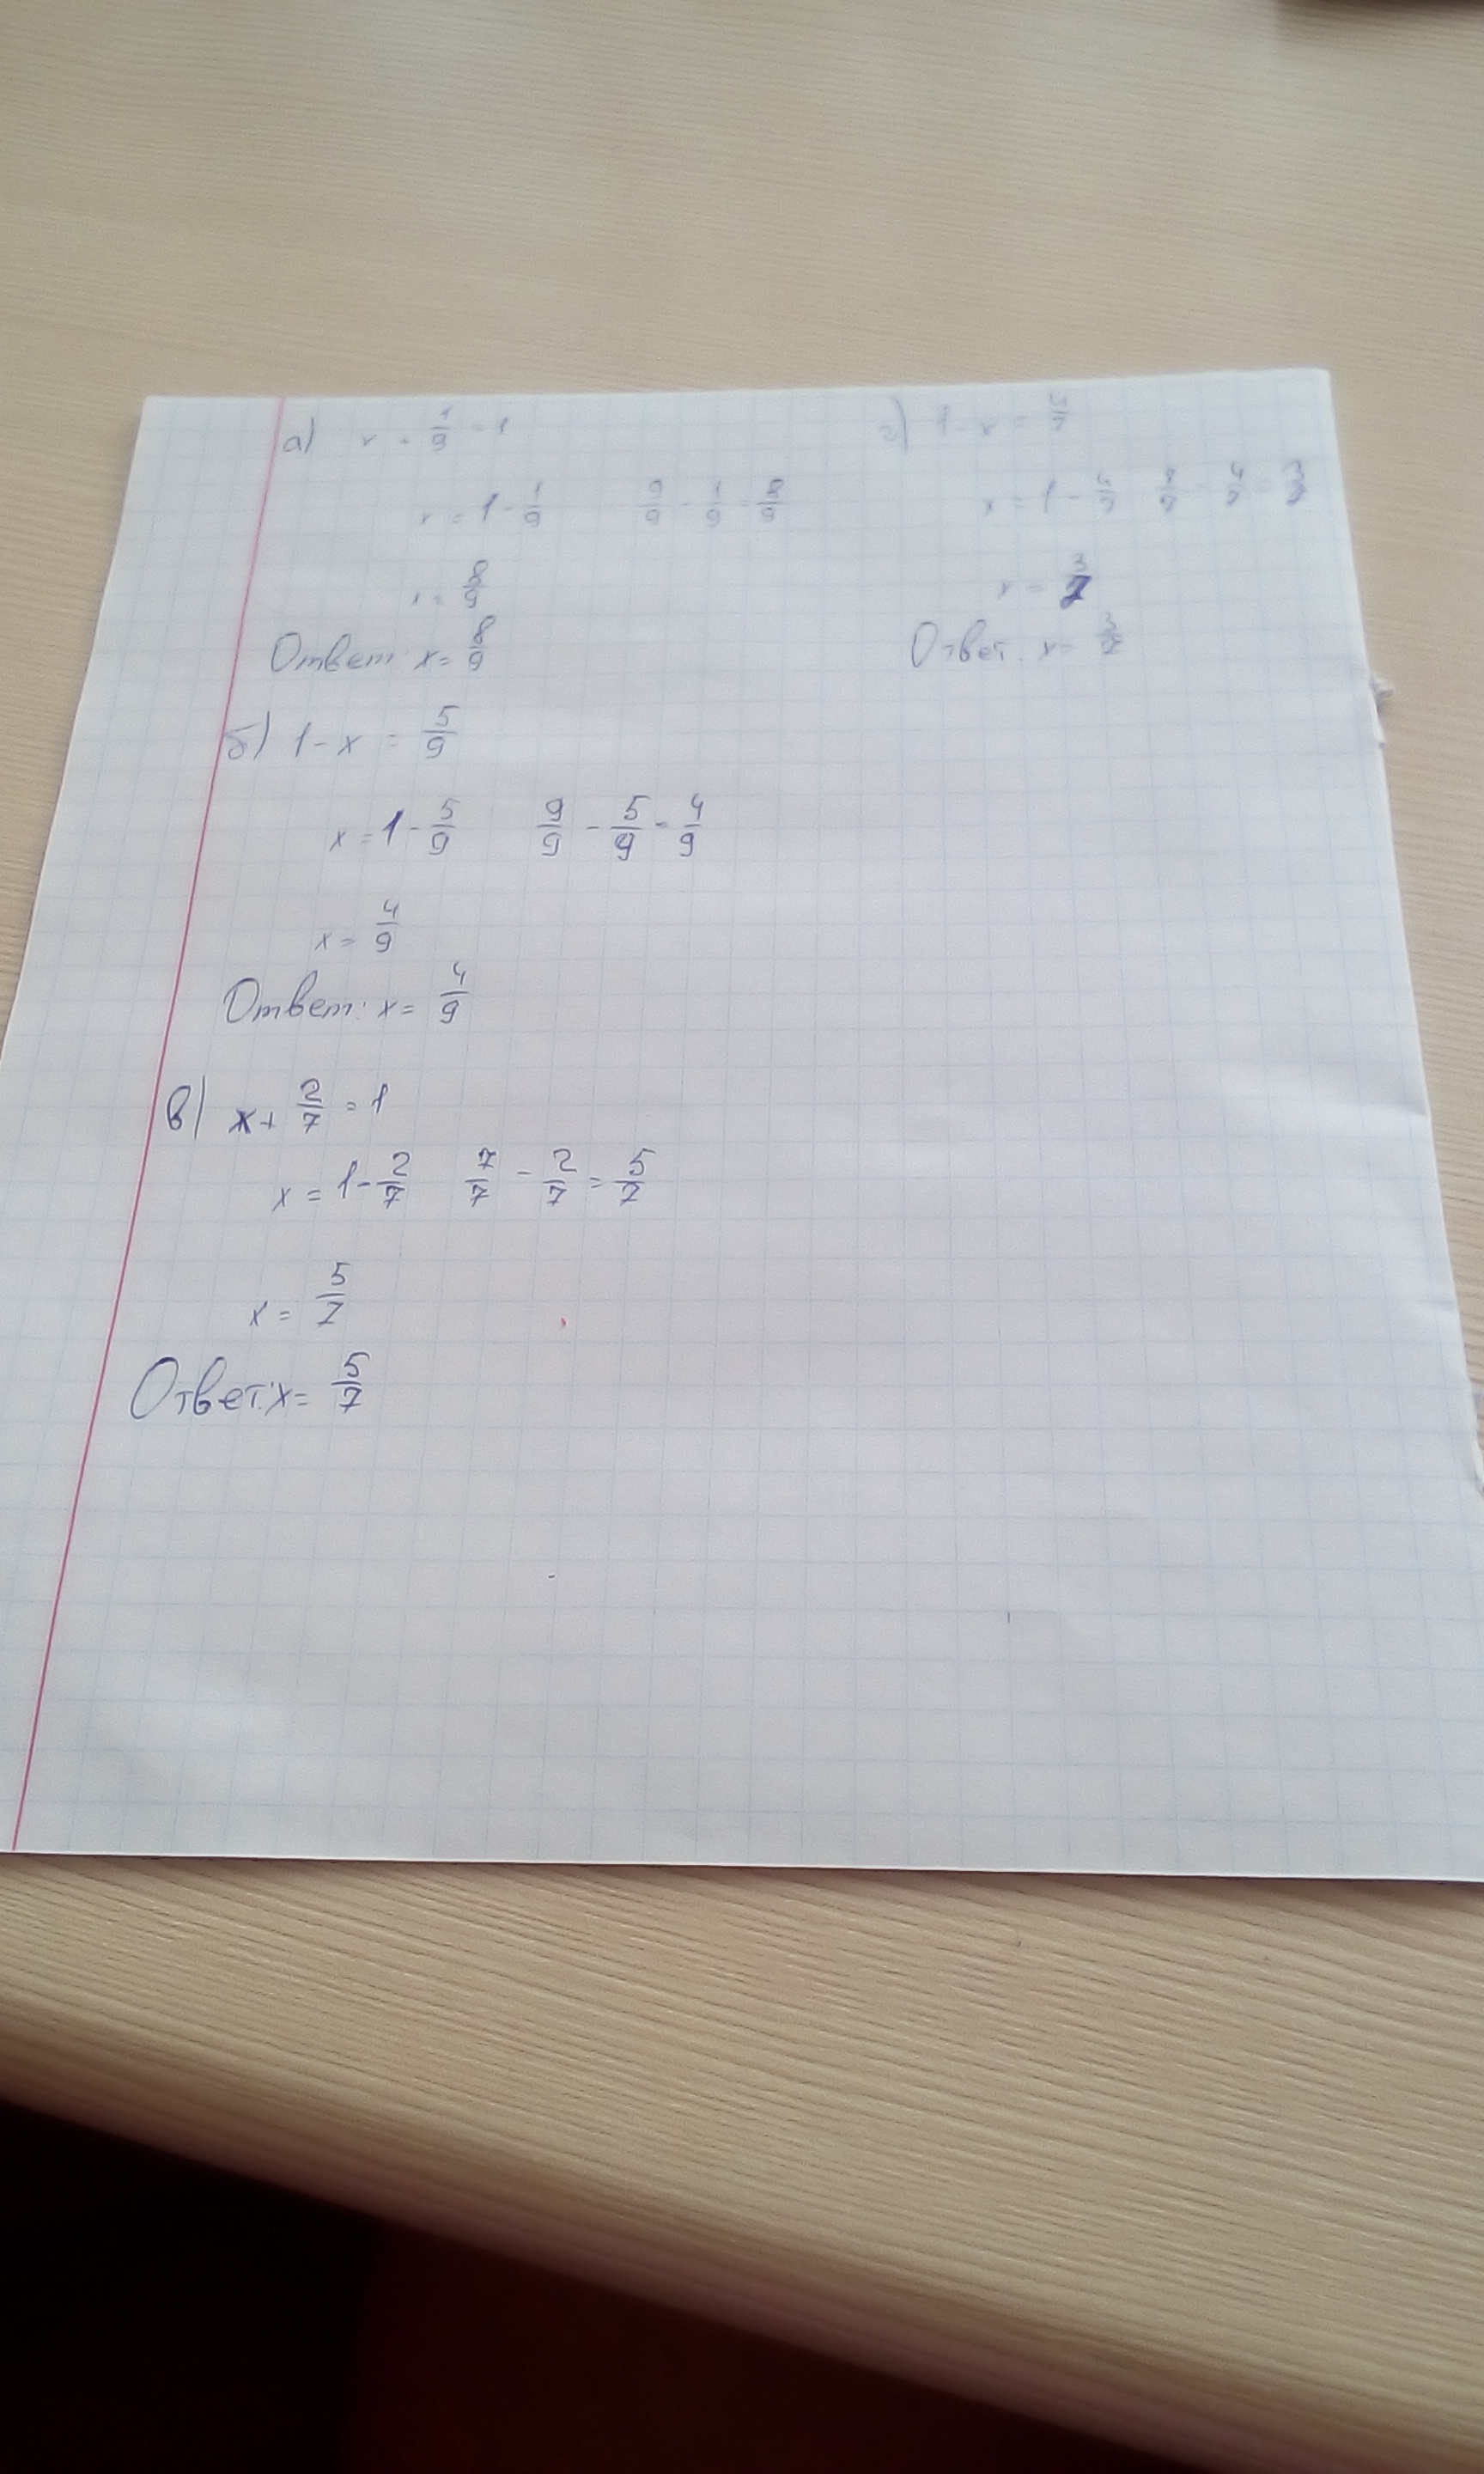 а) x + 1/9 = 1
x = 1 - 1/9 9/9 - 1/9 = 8/9
x = 8/9
Ответ: x = 8/9
б) 1 - x = 5/9
x = 1 - 5/9 9/9 - 5/9 = 4/9
x = 4/9
Ответ: x = 4/9
в) x + 2/7 = 1
x = 1 - 2/7 7/7 - 2/7 = 5/7
x = 5/7
Ответ: x = 5/7
г) 1 - x = 4/7
x = 1 - 4/7 7/7 - 4/7 = 3/7
x = 3/7
Ответ: x = 3/7